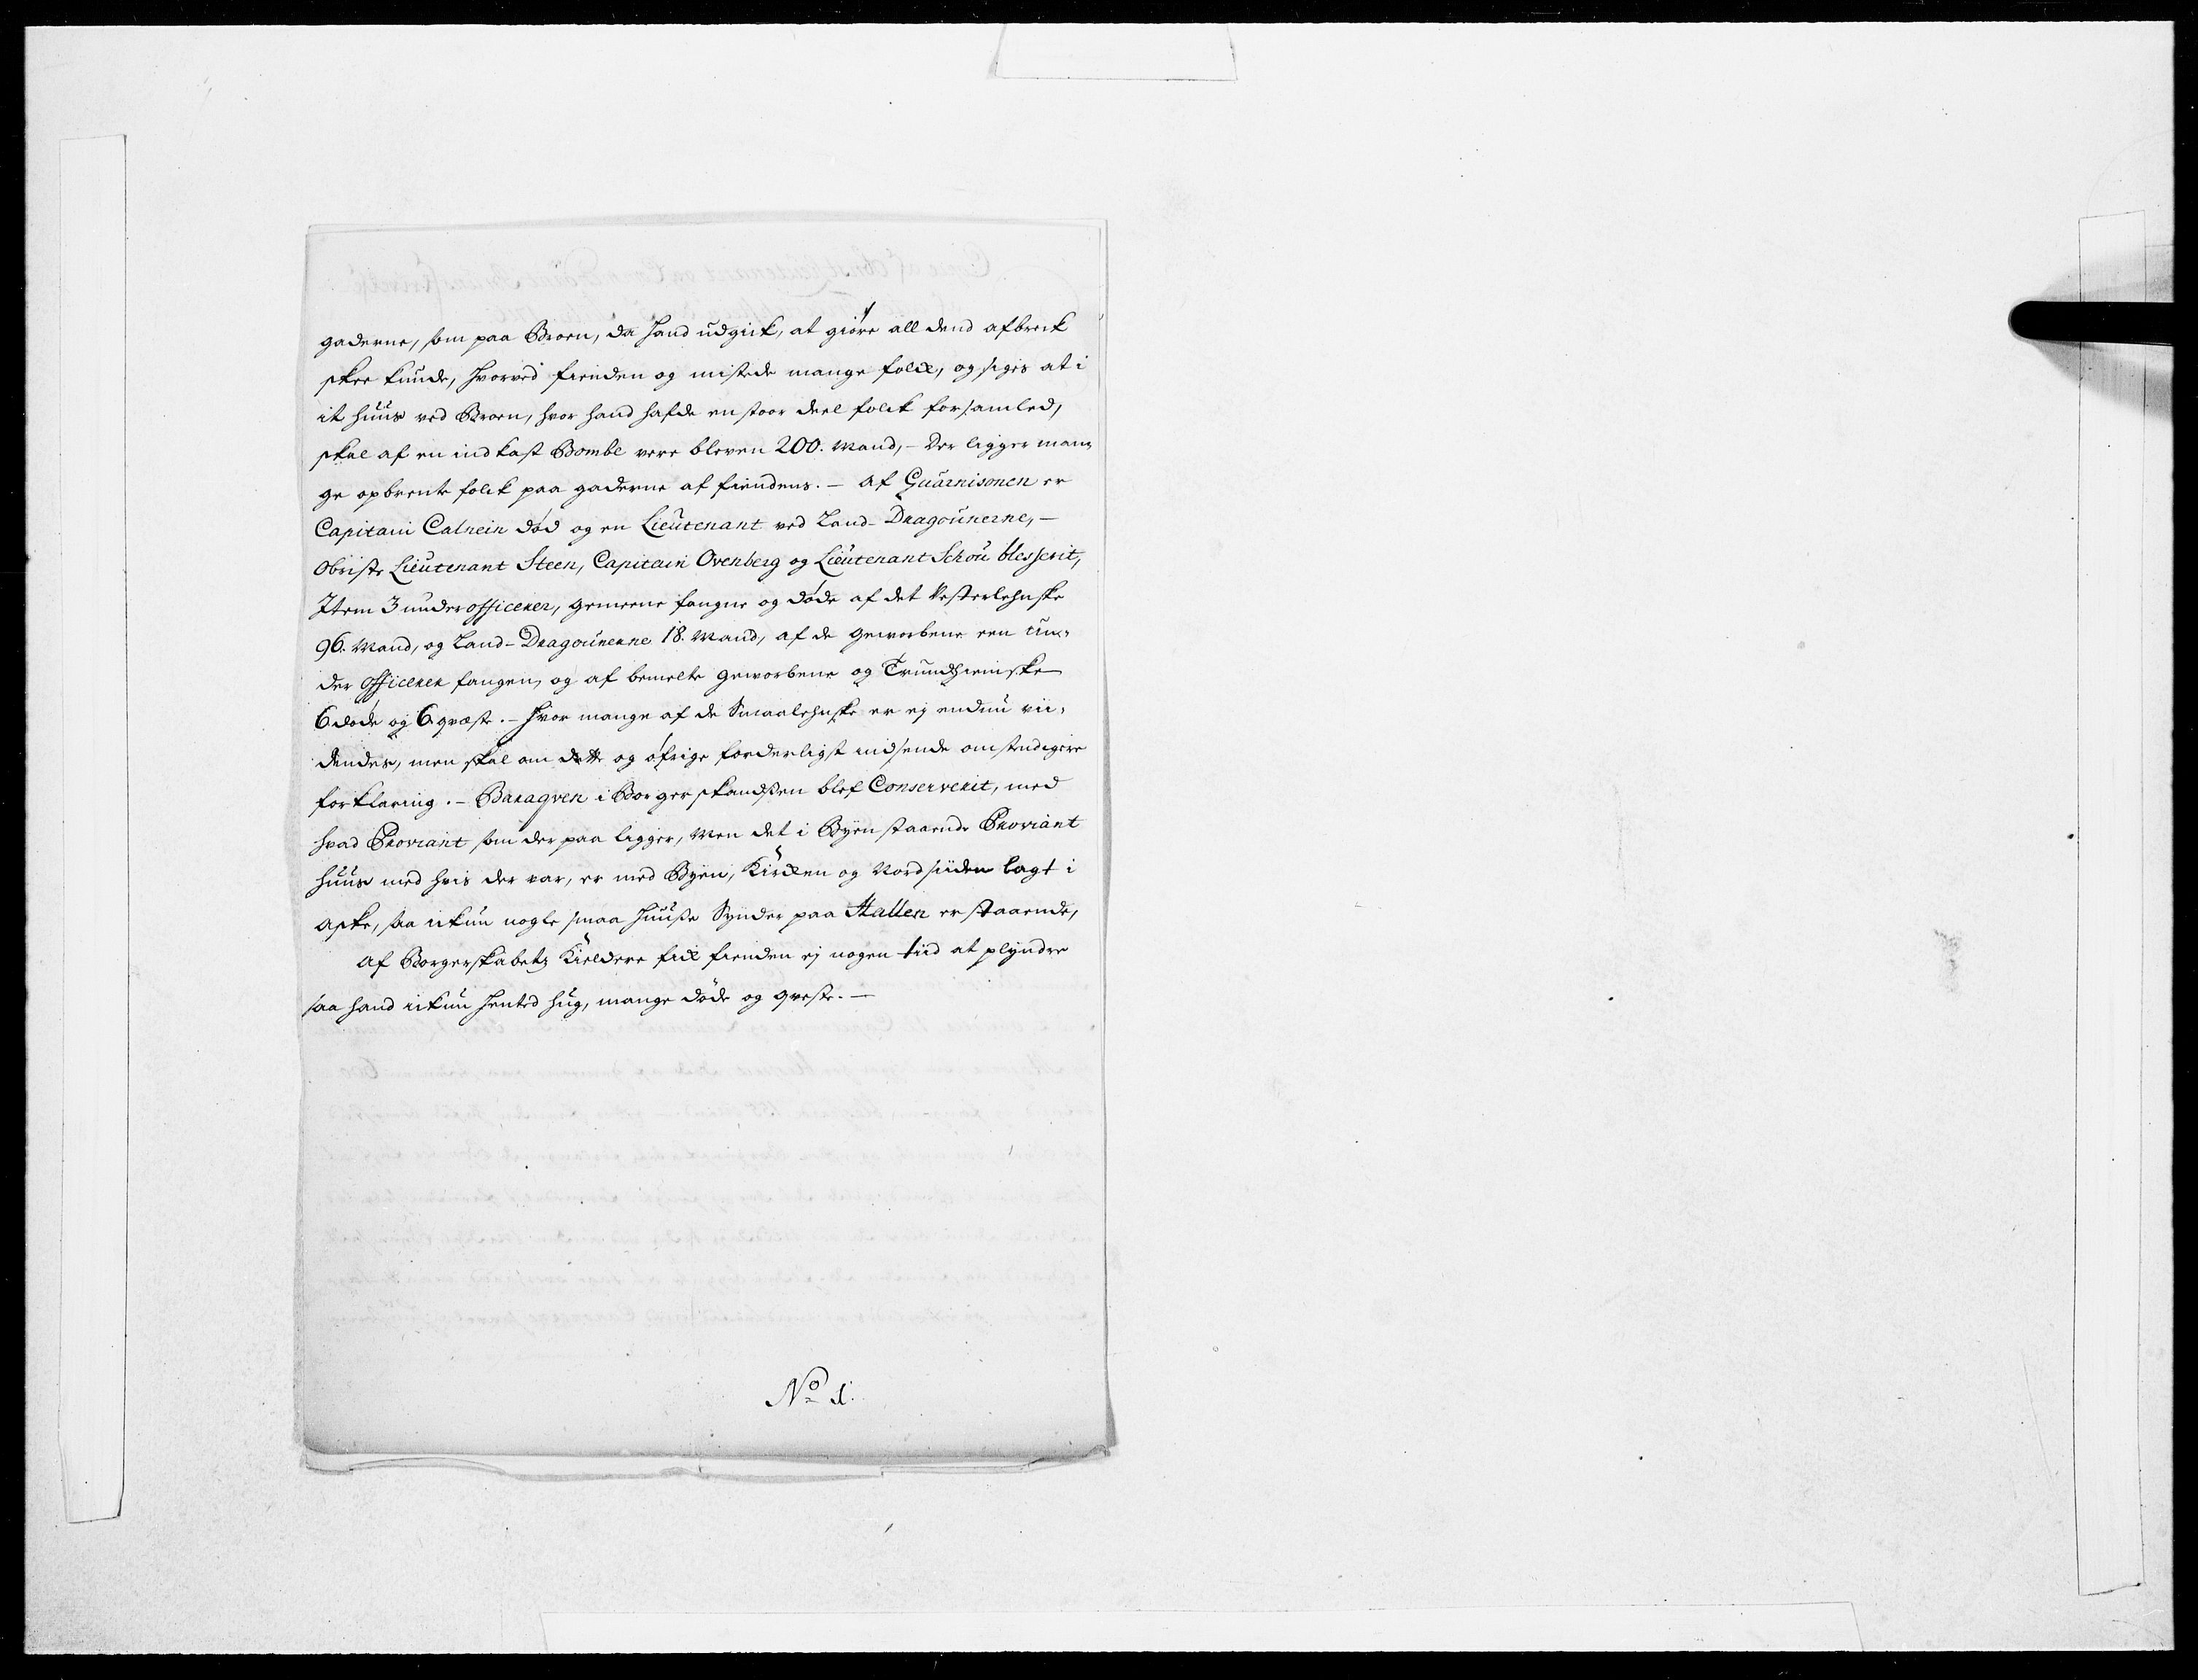 gaderne, som paa Broen, da hand udgick, at giøre all dend afbreck
skee kunde, hvorved fienden og mistede mange folck, og siges at i
it huus ved Broen, hvor hand hafde en stoor deel folck forsamled,
skal af en indkast Bombe vere bleven 200. Mand, - Der ligger man-
ge opbrente folck paa gaderne af fiendens. - Af Guarnisonen er
Capitain Calnein død og en Lieutenant ved Land-Dragounerne, -
Obriste Lieutenant Steen, Capitain Ovenberg og Lieutenant Schou blesserit,
Item 3 underofficerer, gemeene fangne og døde af det Vesterlehnske
96. Mand, og Land-Dragounerne 18. Mand, af de geworbene een un-
der Officerer fangen, og af bemelte geworbene og Trundhiemske
6 døde og 6 qvæste. - Hvor mange af de Smaalehnske er ej endnu vii-
dendes, men skal om dette og øfrige forderligst indsende omstendigere
forklaring. - Baraqven i Borgerskandsen blef Conserverit, med
hvad Proviant som der paa ligger, Men det i Byen staaende Proviant
huus med hvis der var, er med Byen, Kircken og Nordsiiden lagt i
Aske, saa ickun nogle smaa huuse Synder paa Hallen er staaende,
Af Borgerskabetz Kieldere fick fienden ej nogen tiid at plyndre
saa hand ickun hented hug, mange døde og qveste. -
No 1.